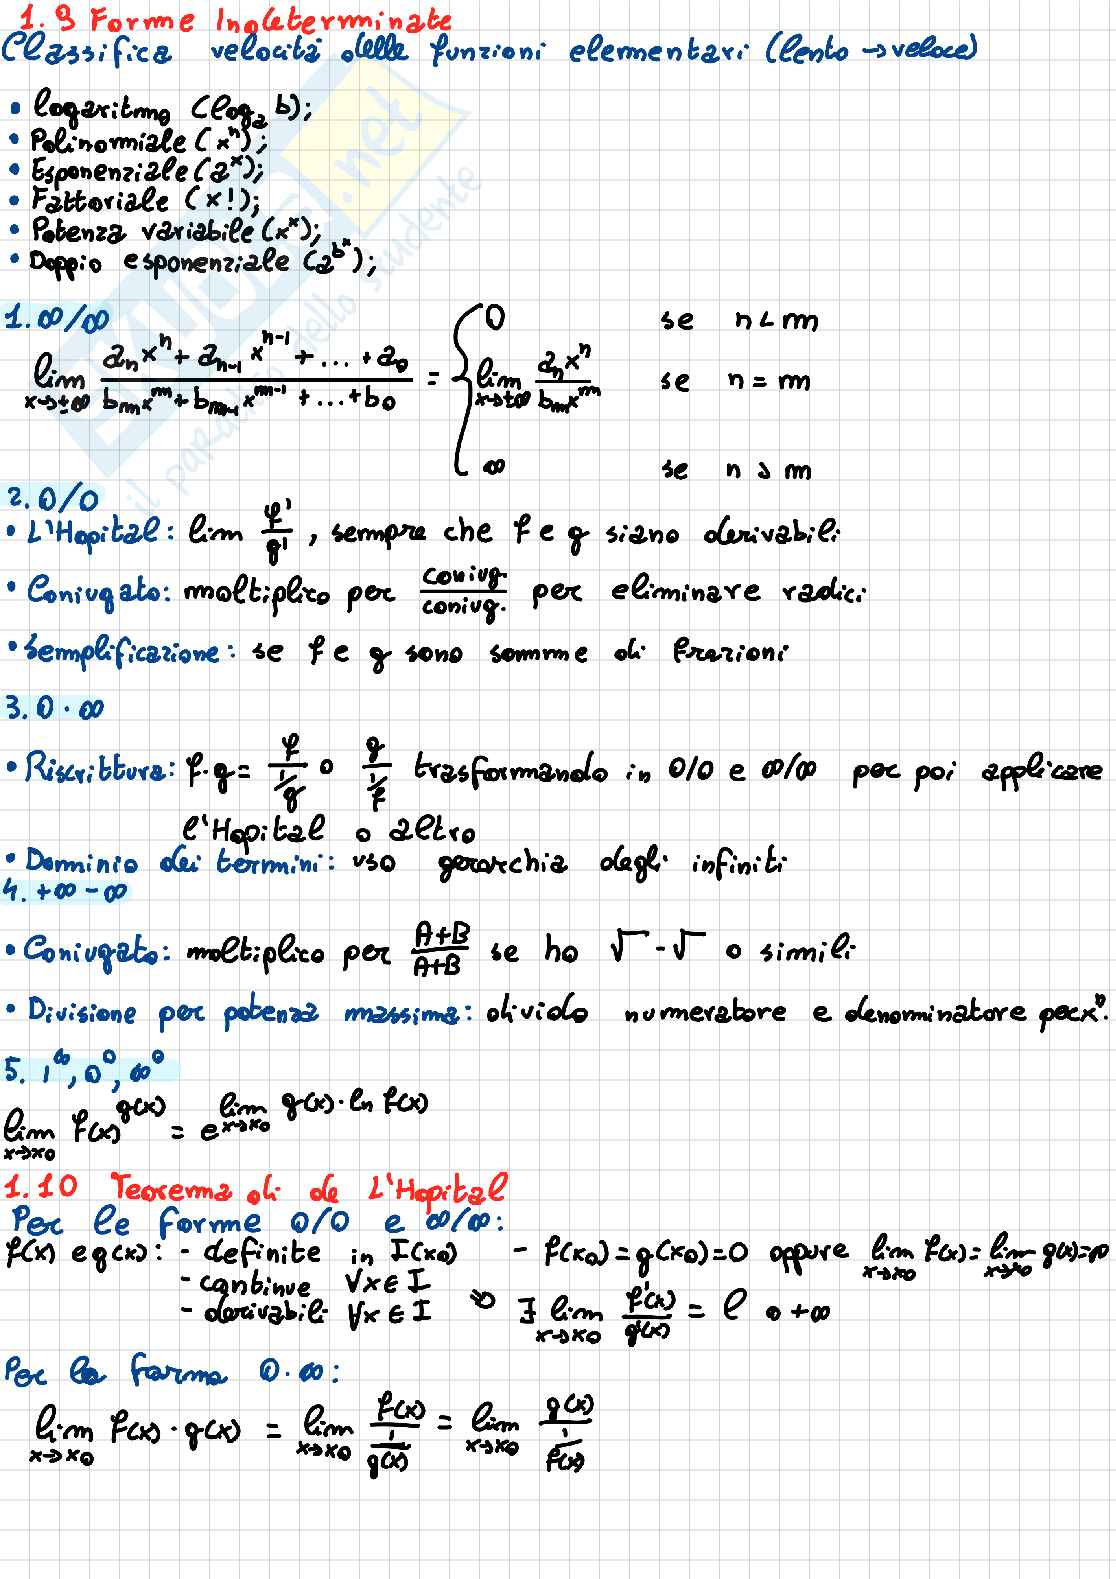 1.9 Forme Indeterminate
Classifica velocità delle funzioni elementari (lento → veloce)
• logaritmo (logₐ b);
• Polinomiale (xⁿ);
• Esponenziale (aˣ);
• Fattoriale (x!);
• Potenza variabile (xˣ);
• Doppio esponenziale (a^b^x);
1. ∞/∞
lim x→±∞ (aₙxⁿ + aₙ₋₁xⁿ⁻¹ + ... + a₀)/(bₘxᵐ + bₘ₋₁xᵐ⁻¹ + ... + b₀) = {
0 se n < m
lim x→±∞ aₙxⁿ/bₘxᵐ se n = m
∞ se n > m
2. 0/0
• L'Hopital: lim f'/g', sempre che f e g siano derivabili
• Coniugato: moltiplico per coniug./coniug. per eliminare radici
• Semplificazione: se f e g sono somme di frazioni
3. 0·∞
• Riscrittura: f·g = f/(1/g) o g/(1/f) trasformando in 0/0 e ∞/∞ per poi applicare
l'Hopital o altro
• Dominio dei termini: uso gerarchia degli infiniti
4. +∞-∞
• Coniugato: moltiplico per A+B/A+B se ho √ - √ o simili
• Divisione per potenza massima: divido numeratore e denominatore per xⁿ.
5. 1^∞, 0⁰, ∞⁰
lim x→x₀ f(x)^g(x) = e^(lim x→x₀ g(x)·ln f(x))
1.10 Teorema di de L'Hopital
Per le forme 0/0 e ∞/∞:
f(x) e g(x): - definite in I(x₀) - f(x₀)=g(x₀)=0 oppure lim x→x₀ f(x) = lim x→x₀ g(x)=∞
- continue ∀x∈I
- derivabili ∀x∈I ⇒ ∃ lim x→x₀ f'(x)/g'(x) = l o +∞
Per la forma 0·∞:
lim x→x₀ f(x)·g(x) = lim x→x₀ f(x)/(1/g(x)) = lim x→x₀ g(x)/(1/f(x))
SKUOLA.net
il paradiso dello studente